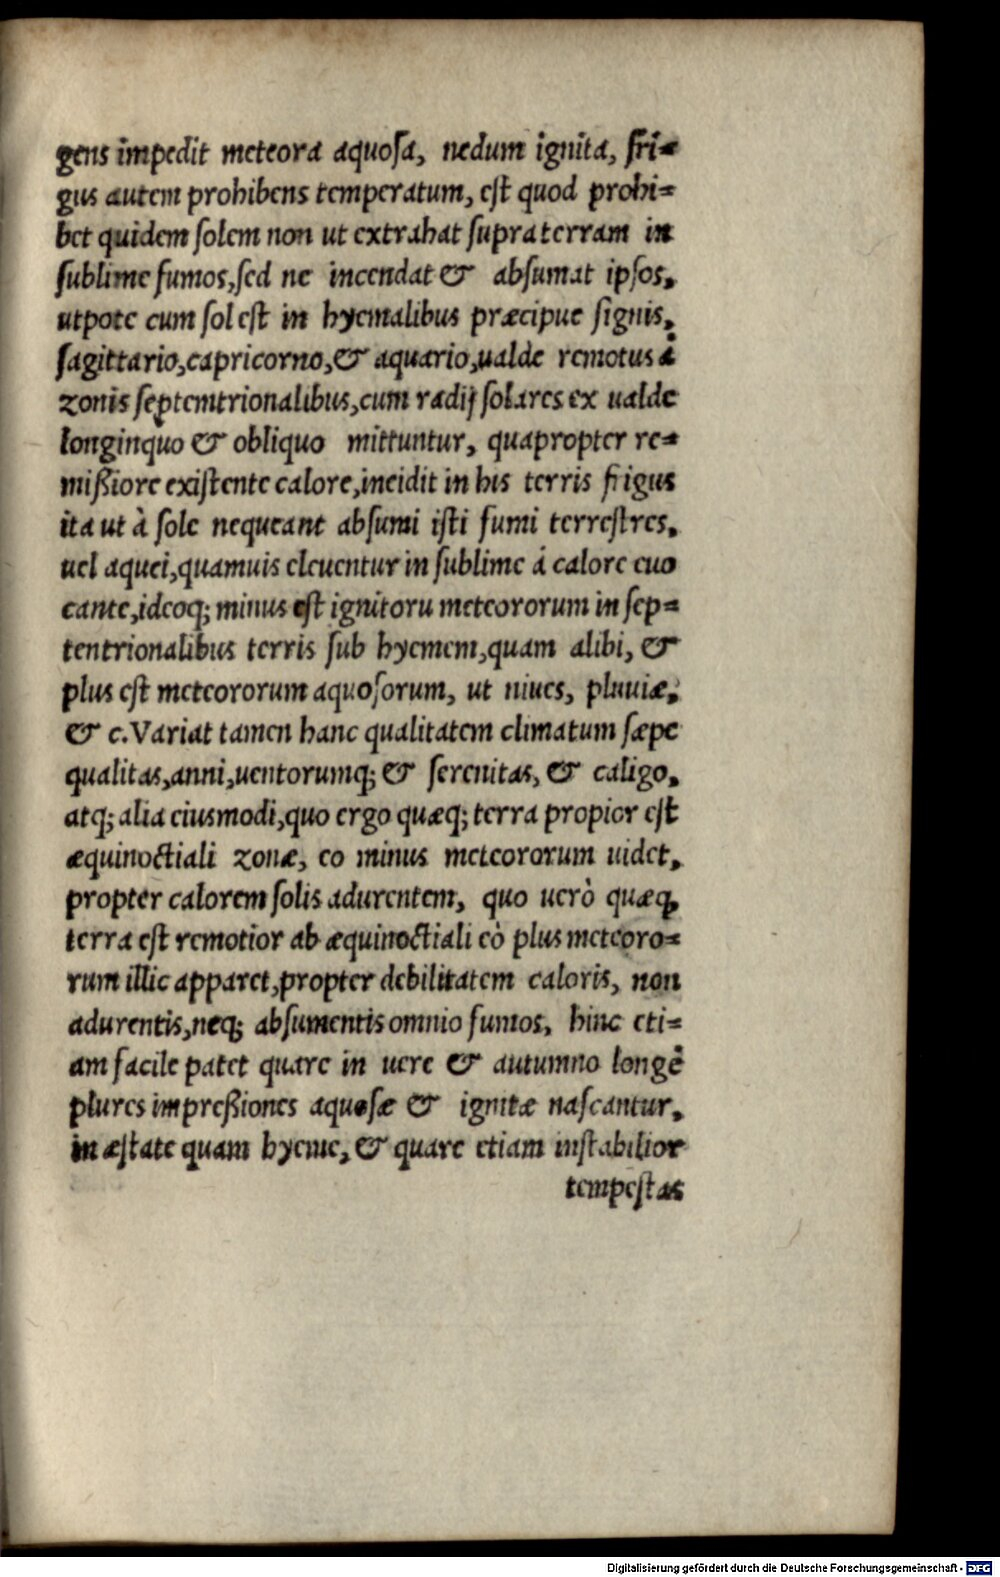 gens impedit meteora aquoſa, nedum ignita, fri=
gus autem prohibens temperatum, eſt quod prohi=
bet quidem ſolem non ut extrahat ſupra terram in
ſublime fumos, ſed ne incendat & abſumat ipſos,
utpote cum ſol eſt in hyemalibus præcipue ſignis,
ſagittario, capricorno, & aquario, ualde remotus à
zonis ſeptemtrionalibus, cum radij ſolares ex ualde
longinquo & obliquo mittuntur, quapropter re=
mißiore exiſtente calore, incidit in his terris frigus
ita ut à ſole nequeant abſumi iſti fumi terreſtres,
uel aquei, quamuis eleuentur in ſublime á calore euo
cante, ideoq; minus eſt ignitoru meteororum in ſep=
tentrionalibus terris ſub hyemem, quam alibi, &
plus eſt meteororum aquoſorum, ut niues, pluuiæ,
& c. Variat tamen hanc qualitatem climatum ſæpe
qualitas, anni, uentorumq; & ſerenitas, & caligo,
atq; alia eiusmodi, quo ergo quæq; terra propior eſt
æquinoctiali zonæ, eo minus meteororum uidet,
propter calorem ſolis adurentem, quo uerò quæq;
terra eſt remotior ab æquinoctiali eò plus meteoro=
rum illic apparet, propter debilitatem caloris, non
adurentis, neq; abſumentis omnio fumos, hinc eti=
am facile patet quare in uere & autumno longè
plures impreßiones aquoſæ & ignitæ naſcantur,
in æſtate quam hyeme, & quare etiam inſtabilior
tempeſtas
Digitalisierung gefördert durch die Deutsche Forschungsgemeinschaft - DFG